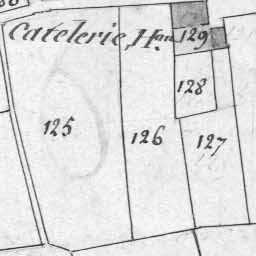 Catelerie, Hau 129
128
125
126
127